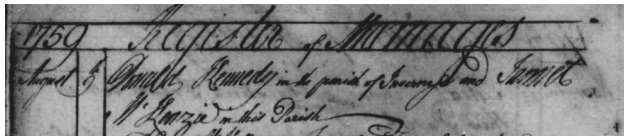 1759 Register of Marriages
August 5 Donald Kennedy in the parish of Inverness and Jannet
McKenzie in this Parish